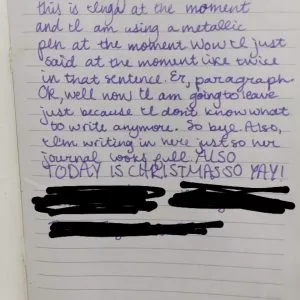 this is at the moment
and I am using a metallic
pen at the moment Wow I just
said at the moment like twice
in that sentence. Er, paragraph.
Ok, well now I am going to leave
just because I dont know what
to write anymore. So bye. Also,
I'm writing in here just so her
journal looks full. ALSO
TODAY IS CHRISTMAS SO YAY!